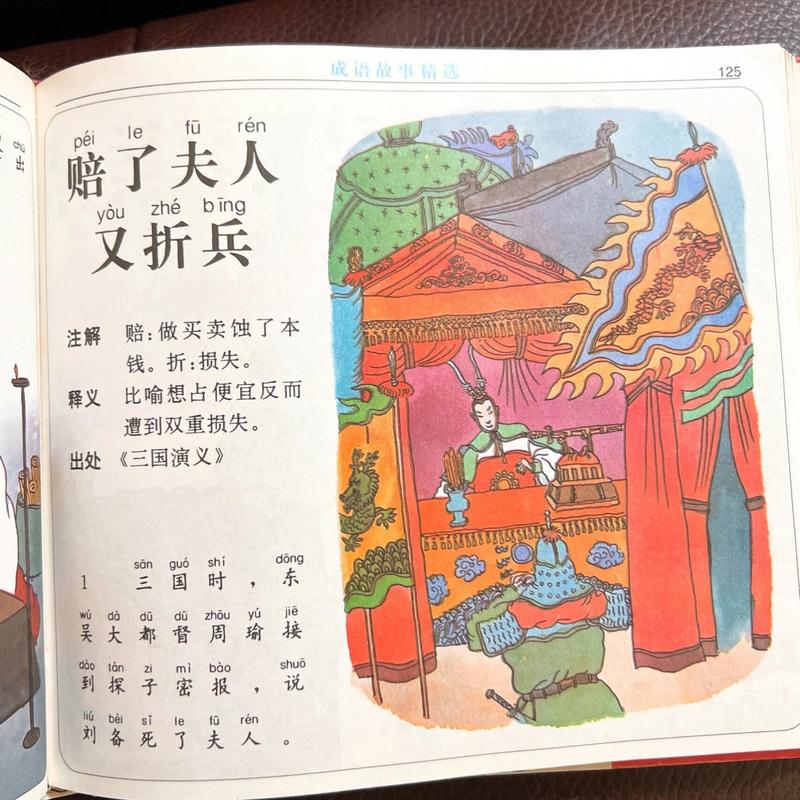 成语故事精选
125
chū
出
péi le fū rén
赔了夫人
yòu zhé bīng
又折兵
注解 赔:做买卖蚀了本
钱。折:损失。
释义 比喻想占便宜反而
遭到双重损失。
出处 《三国演义》
sān guó shí dōng
1 三国时，东
wú dà dū dū zhōu yú jiē
吴大都督周瑜接
dào tàn zi mì bào shuō
到探子密报，说
liú bèi sǐ le fū rén
刘备死了夫人。